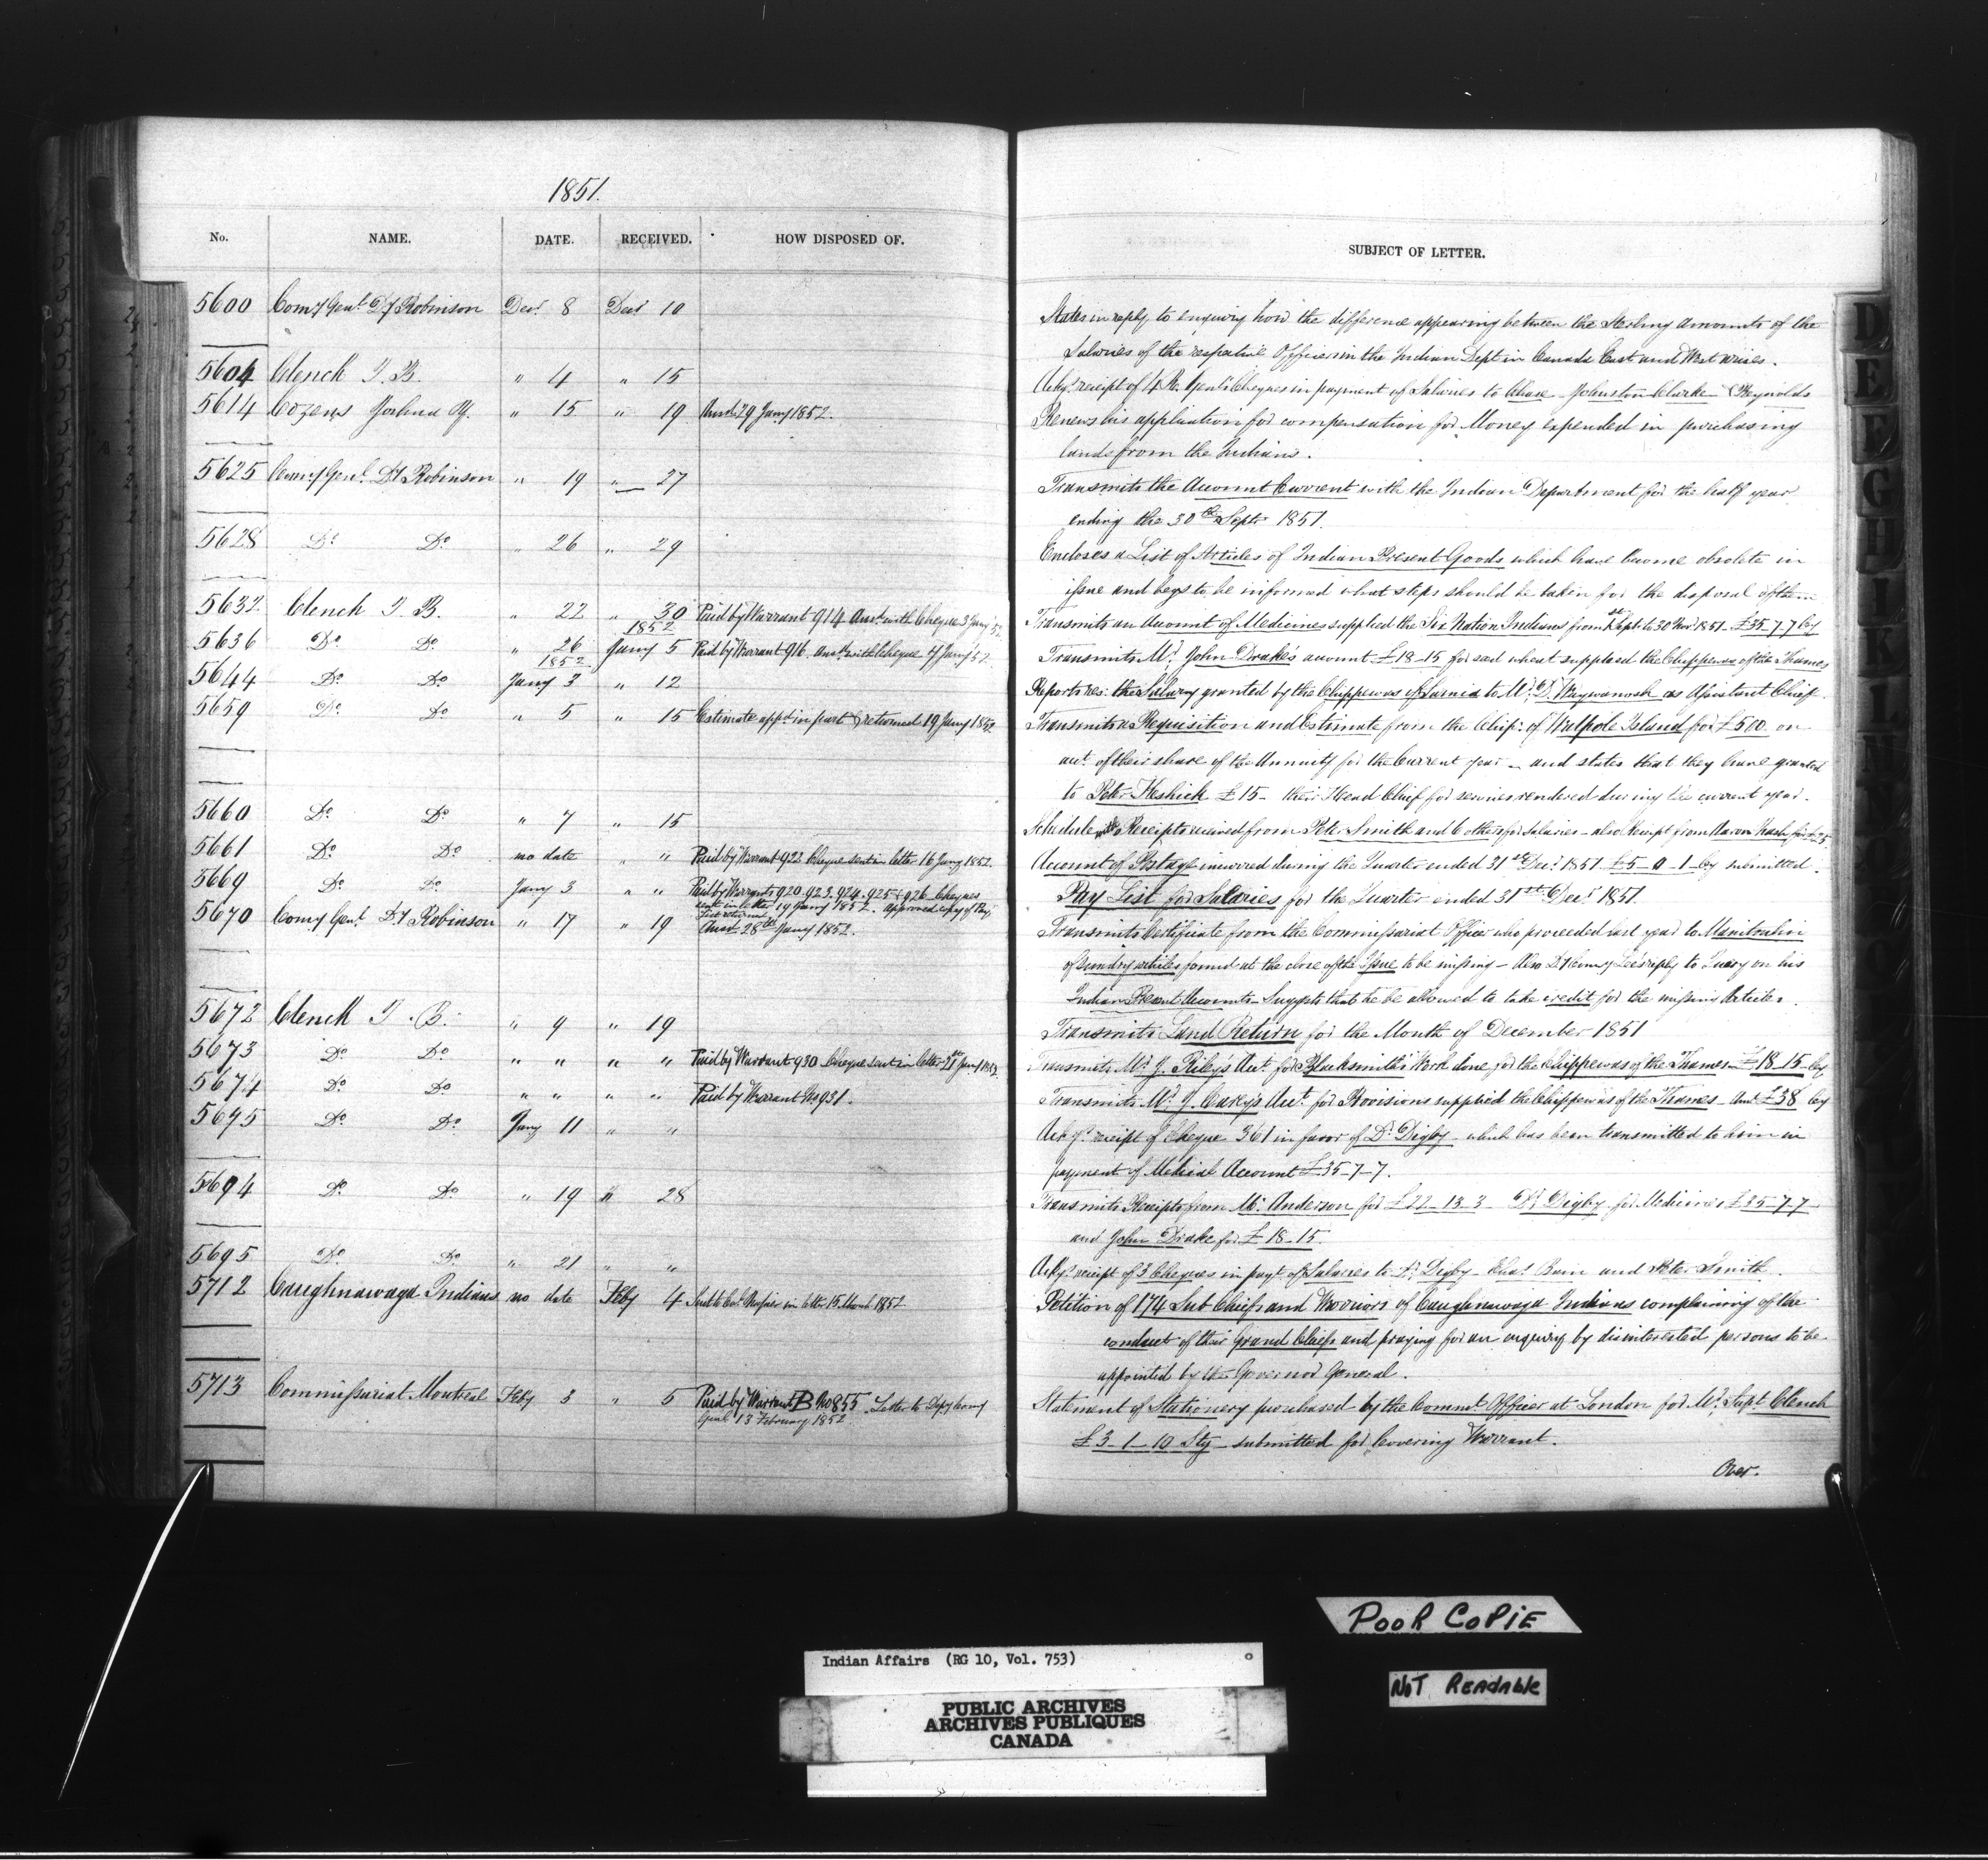 1851.
No. NAME. DATE. RECEIVED. HOW DISPOSED OF.
5600 Comy Genl. Dy Robinson Decr 8 Decr 10
5604 Clench J. B. " 4 " 15
5614 Cozens Joshua Y. " 15 " 19 Ansd. 29 Jany 1852.
5625 Comy Genl. Dy Robinson " 19 " 27
5628 Do Do " 26 " 29
5632 Clench J. B. " 22 " 30 Paid by Warrant 914 Ansd. with Cheque 3 Jany 52
1852
5636 Do Do " 26 Jany 5 Paid by Warrant 916. ansd. with Cheque 7 Jany 52
1852
5644 Do Do Jany 3 " 12
5659 Do Do " 5 " 15 Estimate appd. in part & returned 19 Jany 1852
5660 Do Do " 7 " 15
5661 Do Do no date " " Paid by Warrant 922 Cheque sent in letter 16 Jany 1852.
5669 Do Do Jany 3 " " Paid by Warrants 920. 923. 924. 925 & 926 Cheques
sent in letter 19 Jany 1852. Approved copy of Pay
List returned
5670 Comy Genl. Dy Robinson " 17 " 19 Ansd. 28th Jany 1852.
5672 Clench J. B. " 9 " 19
5673 Do Do " " " " Paid by Warrant 930 Cheque sent in letter 21st Jany 1852.
5674 Do Do " " " " Paid by Warrant No 931.
5675 Do Do Jany 11 " "
5694 Do Do " 19 " 28
5695 Do Do " 21 " "
5712 Caughnawaga Indians no date Feby 4 Sent to Col. Napier in letter 15 March 1852
5713 Commissariat Montreal Feby 3 " 5 Paid by Warrant B No 855 Letter to Depy Comy
Genl 13 February 1852
SUBJECT OF LETTER.
States in reply to enquiry how the difference appearing between the Sterling amounts of the
Salaries of the respective Officers in the Indian Dept in Canada East and West arises.
Ackgs receipt of 4 Cheques in payment of Salaries to Chase Johnston Clarke & Reynolds
Renews his application for compensation for Money expended in purchasing
lands from the Indians.
Transmits the Account Current with the Indian Department for the half year
ending the 30th Septr 1851.
Encloses a List of Articles of Indian Present Goods which have become obsolete in
issue and begs to be informed what steps should be taken for the disposal of them
Transmits an Account of Medicines supplied the Six Nation Indians from 1st Sept. to 30 Nov 1851 £35-7-7 Cy
Transmits Mr. John Drake's account £18-15 for seed wheat supplied the Chippewas of the Thames
Reports res: the Salary granted by the Chippewas of Sarnia to Mr. D. Wawanosh as Assistant Chief
Transmits a Requisition and Estimate from the Chips: of Walpole Island for £500 on
acct. of their share of the Annuity for the Current year - and states that they have granted
to Peter Keshick £15 - their Head Chief for services rendered during the current year.
Schedule with Receipts received from Peter Smith and 6 others for Salaries - also Receipt from Aaron
Account of Postage incurred during the Quarter ended 31st Decr 1851 £5-0-1 Cy submitted.
Pay List for Salaries for the Quarter ended 31st Decr 1851.
Transmits Certificate from the Commissariat Officer who proceeded last year to Manitoulin
of Sundry articles found at the close of the Issue to be missing - Also Dy Comy Lee's reply to Query on his
Indian Present Accounts - Suggests that he be allowed to take credit for the missing Articles.
Transmits Land Return for the Month of December 1851
Transmits Mr. J. Riley's Acct. for Blacksmith's Work done for the Chippewas of the Thames £18-15 Cy
Transmits Mr. J. Carey's Acct. for Provisions supplied the Chippewas of the Thames - Amt. £38 Cy
Ackgs. receipt of Cheque 361 in favor of Dr. Digby which has been transmitted to him in
payment of Medical Account £35-7-7.
Transmits Receipts from Mr. Anderson for £22-13-3 - Dr. Digby for Medicines £35-7-7
and John Drake for £18-15.
Ackgs. receipt of 3 Cheques in payt. of Salaries to Dr. Digby - Chas. Bain and Peter Smith.
Petition of 174 Sub Chiefs and Warriors of Caughnawaga Indians complaining of the
conduct of their Grand Chiefs and praying for an enquiry by disinterested persons to be
appointed by the Governor General.
Statement of Stationery purchased by the Commt. Officer at London for Mr. Supt. Clench
£3-1-10 Stg - submitted for Covering Warrant.
Over.
D
E
F
G
H
I
K
L
POOR COPIE
NOT READABLE
Indian Affairs (RG 10, Vol. 753)
PUBLIC ARCHIVES
ARCHIVES PUBLIQUES
CANADA